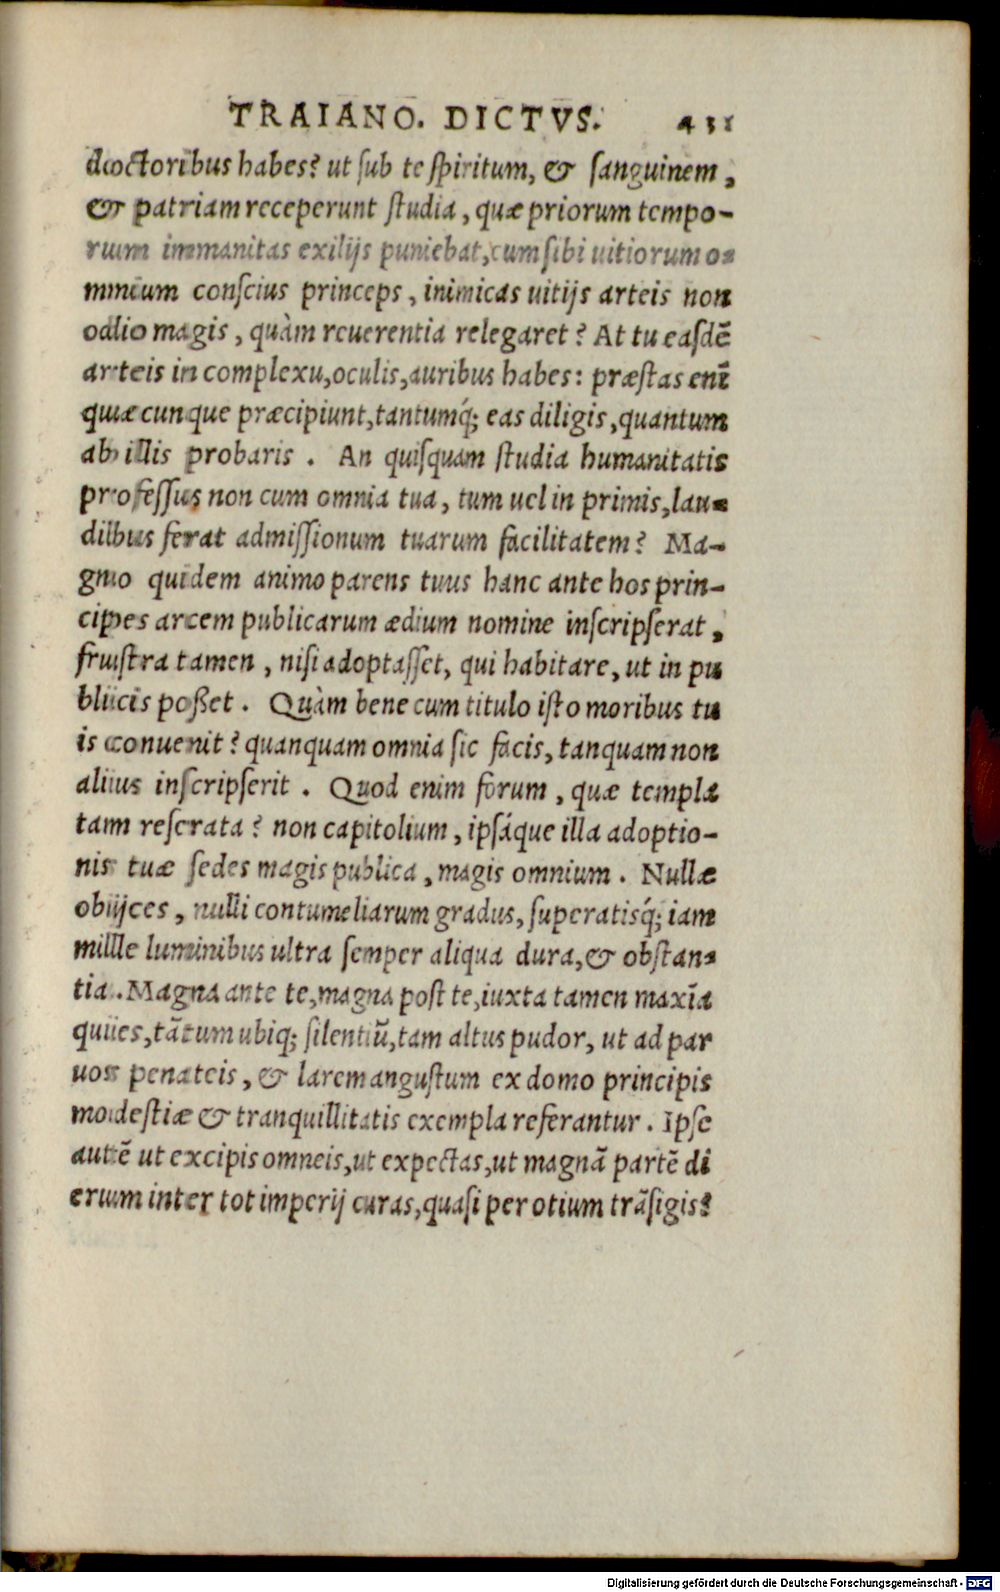 TRAIANO. DICTVS. 431
doctoribus habes? ut ſub te ſpiritum, & ſanguinem,
& patriam receperunt ſtudia, quæ priorum tempo-
rum immanitas exilijs puniebat, cum ſibi uitiorum o-
mnium conſcius princeps, inimicas uitijs arteis non
odio magis, quàm reuerentia relegaret? At tu eaſdẽ
arteis in complexu, oculis, auribus habes: præſtas enĩ
quæcunque præcipiunt, tantumq́; eas diligis, quantum
ab illis probaris. An quiſquam ſtudia humanitatis
profeſſus non cum omnia tua, tum uel in primis, lau-
dibus ferat admiſſionum tuarum facilitatem? Ma-
gno quidem animo parens tuus hanc ante hos prin-
cipes arcem publicarum ædium nomine inſcripſerat,
fruſtra tamen, niſi adoptaſſet, qui habitare, ut in pu
blicis poßet. Quàm bene cum titulo iſto moribus tu
is conuenit? quanquam omnia ſic facis, tanquam non
alius inſcripſerit. Quod enim forum, quæ templa
tam reſerata? non capitolium, ipſáque illa adoptio-
nis tuæ ſedes magis publica, magis omnium. Nullæ
obijces, nulli contumeliarum gradus, ſuperatisq́; iam
mille luminibus ultra ſemper aliqua dura, & obſtan-
tia. Magna ante te, magna poſt te, iuxta tamen maxĩa
quies, tãtum ubiq; ſilentiũ, tam altus pudor, ut ad par
uos penateis, & larem anguſtum ex domo principis
modeſtiæ & tranquillitatis exempla referantur. Ipſe
autẽ ut excipis omneis, ut expectas, ut magnã partẽ di
erum inter tot imperij curas, quaſi per otium trãſigis?
Digitalisierung gefördert durch die Deutsche Forschungsgemeinschaft - DFG